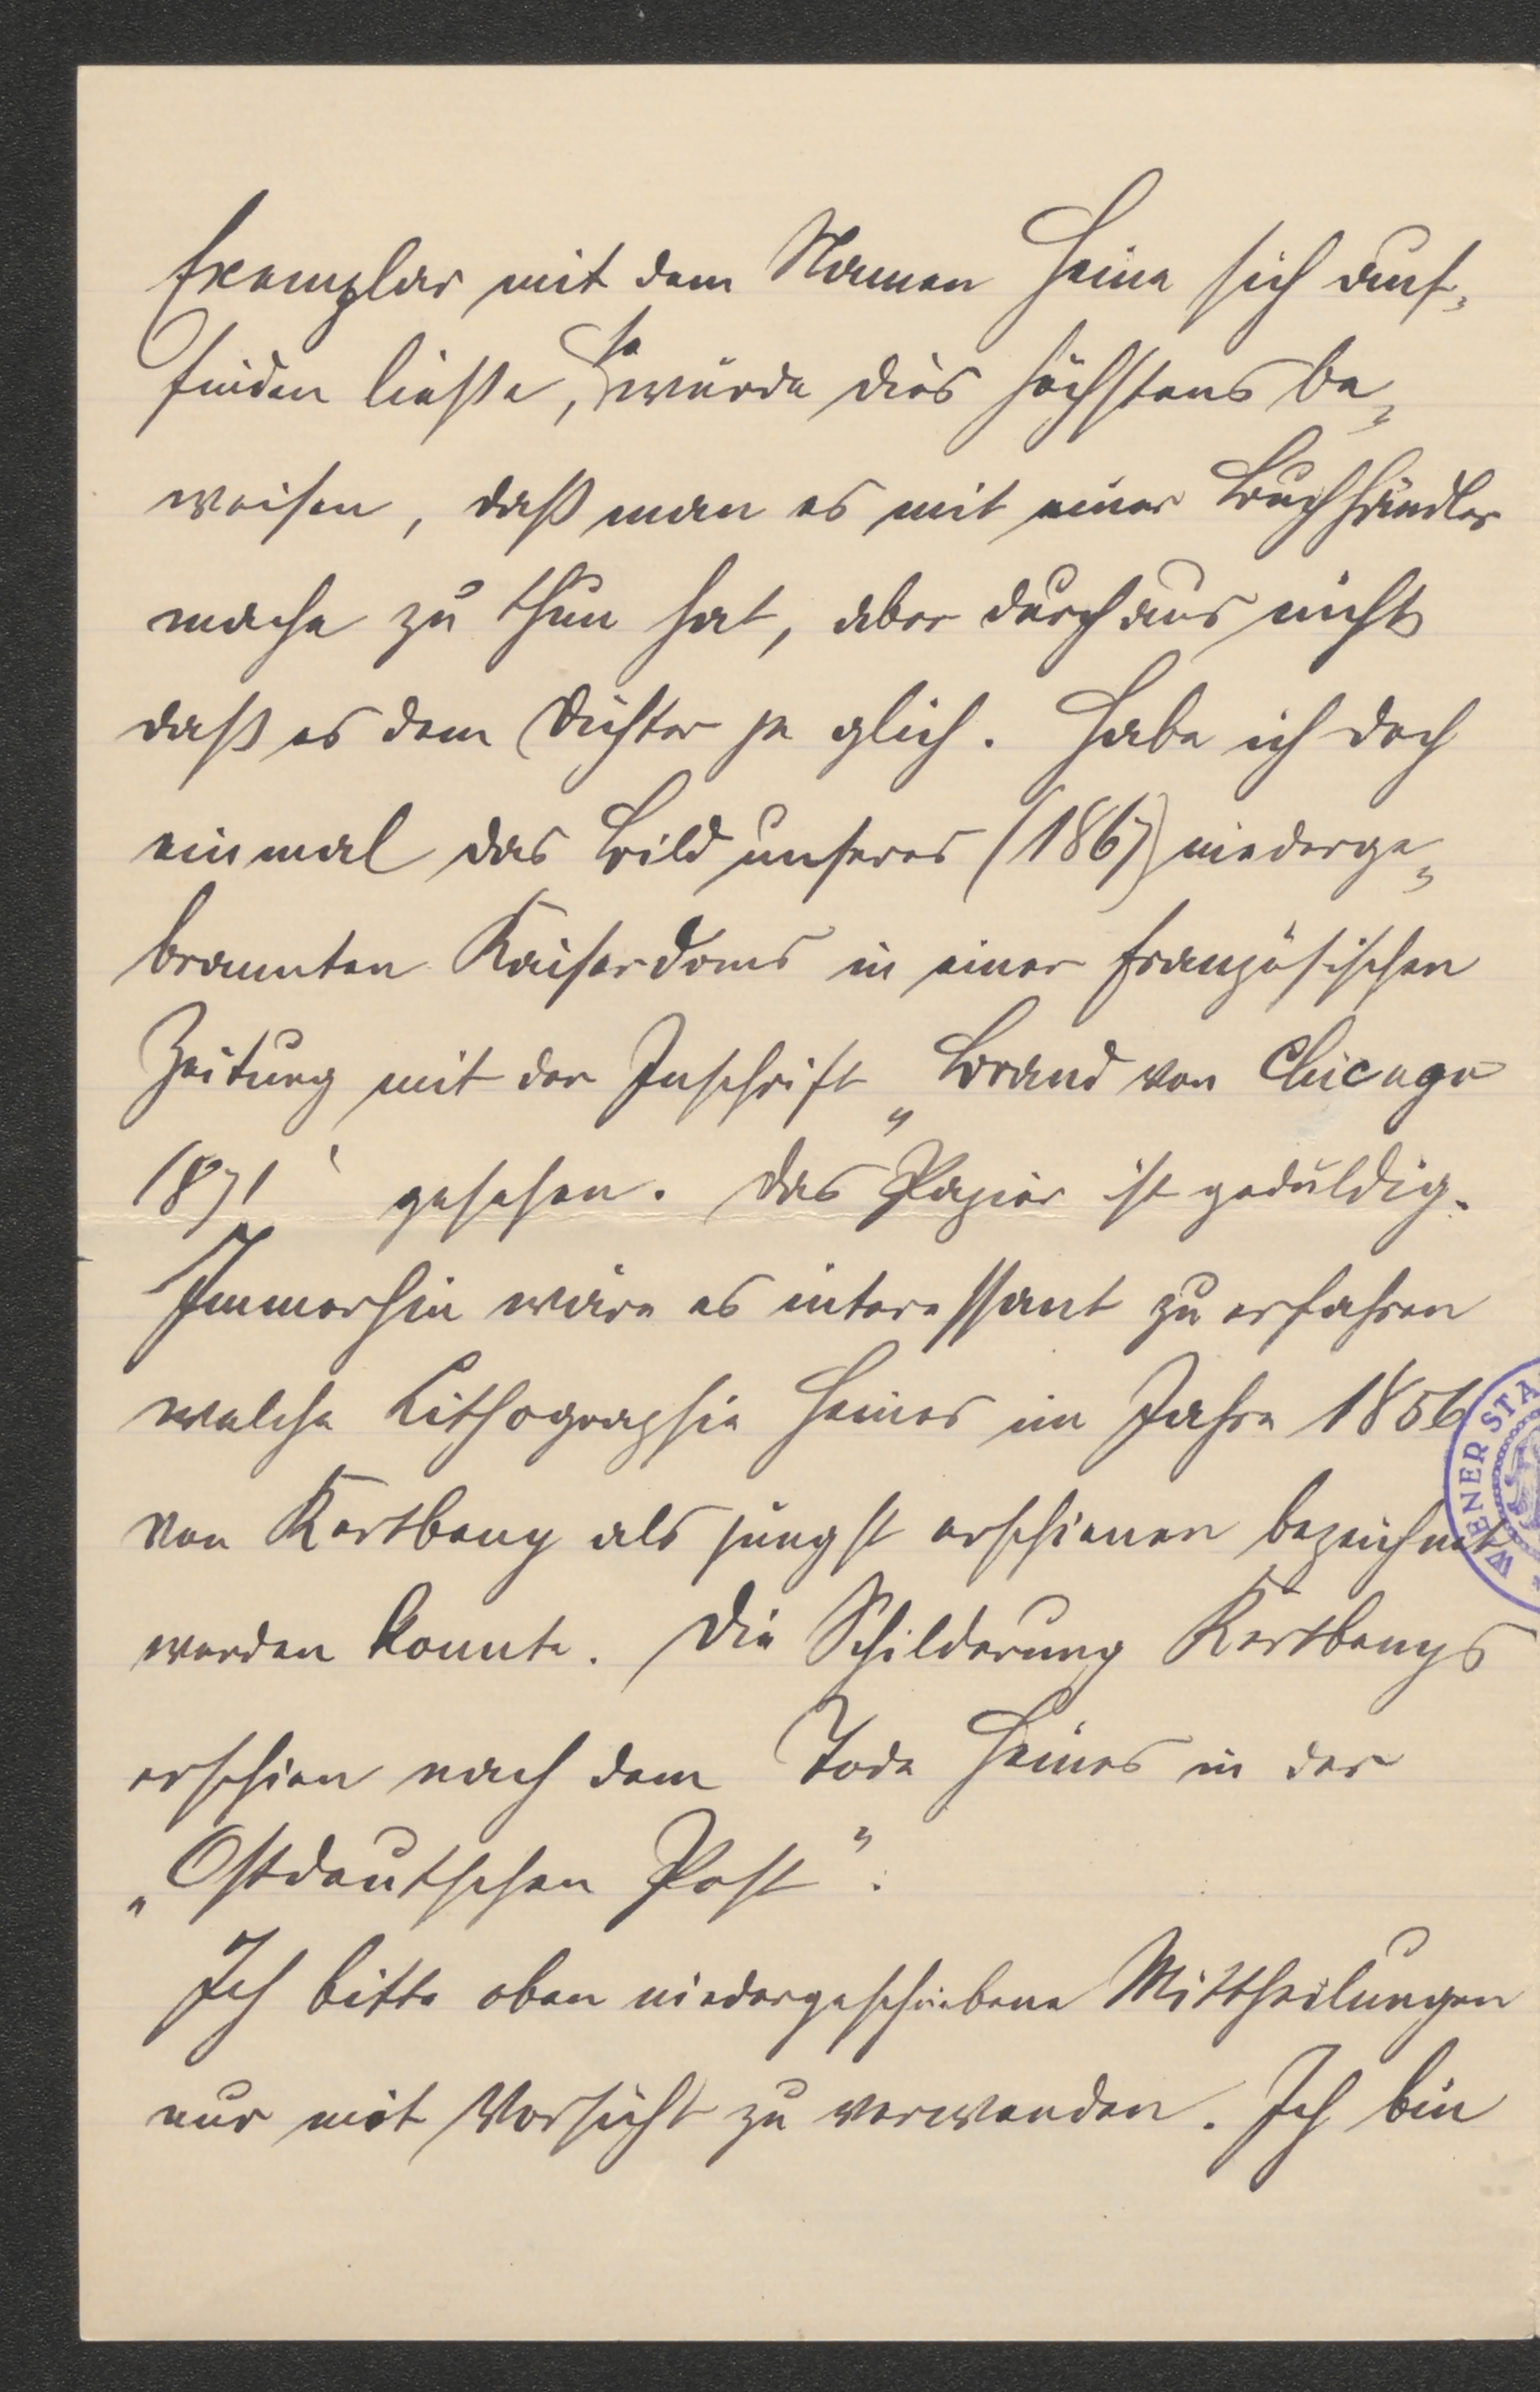 Exemplar mit dem Namen Heine sich auf-
finden ließe, so würde dies höchstens be-
weisen, daß man es mit einer Buchhändler
mache zu thun hat, aber durchaus nicht
daß es dem Dichter je glich. Habe ich doch
einmal das Bild unseres (1867) niederge-
brannten Kaiserdoms in einer französischen
Zeitung mit der Inschrift „Brand von Chicago
1871' gesehen. Das Papier ist geduldig.
Immerhin wäre es interessant zu erfahren
welche Lithographie Heines im Jahre 1856
von Kertbeny als jüngst erschienen bezeichnet
werden konnte. Die Schilderung Kertbenys
erschien nach dem Tode Heines in der
„Ostdeutschen Post".
Ich bitte oben niedergeschriebene Mittheilungen
nur mit Vorsicht zu verwenden. Ich bin
WIENER STA